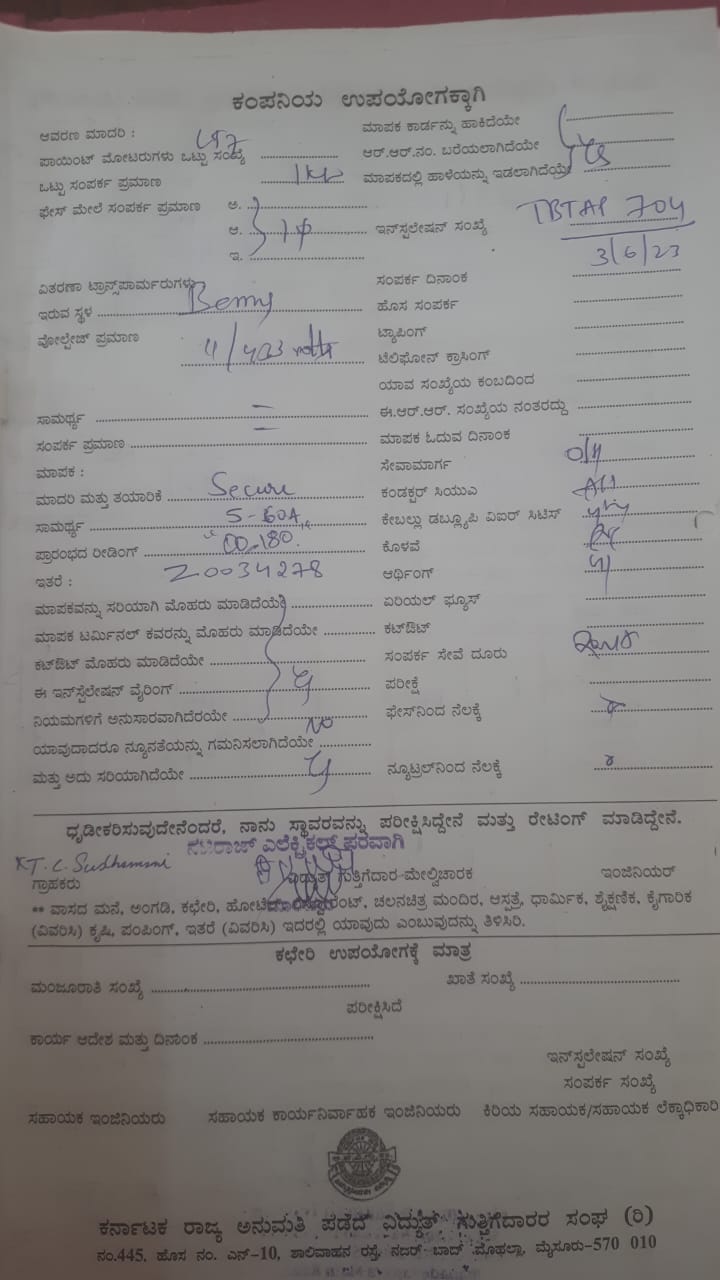 ಕಂಪನಿಯ ಉಪಯೋಗಕ್ಕಾಗಿ
ಆವರಣ ಮಾದರಿ :
ಮಾಪಕ ಕಾರ್ಡನ್ನು ಹಾಕಿದೆಯೇ
ಪಾಯಿಂಟ್ ಮೋಟರುಗಳು ಒಟ್ಟು ಸಂಖ್ಯೆ
ಆರ್.ಆರ್.ನಂ. ಬರೆಯಲಾಗಿದೆಯೇ
ಒಟ್ಟು ಸಂಪರ್ಕ ಪ್ರಮಾಣ 1KW
ಮಾಪಕದಲ್ಲಿ ಹಾಳೆಯನ್ನು ಇಡಲಾಗಿದೆಯೇ
ಫೇಸ್ ಮೇಲೆ ಸಂಪರ್ಕ ಪ್ರಮಾಣ ಅ.
ಆ. 1φ
ಇನ್‌ಸ್ಟಲೇಷನ್ ಸಂಖ್ಯೆ TBTAP 704
ಇ.
3/6/23
ವಿತರಣಾ ಟ್ರಾನ್ಸ್‌ಪಾರ್ಮರುಗಳು
ಸಂಪರ್ಕ ದಿನಾಂಕ
ಇರುವ ಸ್ಥಳ
ಹೊಸ ಸಂಪರ್ಕ
ವೋಲ್ಟೇಜ್ ಪ್ರಮಾಣ
ಟ್ಯಾಪಿಂಗ್
ಟೆಲಿಫೋನ್ ಕ್ರಾಸಿಂಗ್
ಯಾವ ಸಂಖ್ಯೆಯ ಕಂಬದಿಂದ
ಸಾಮರ್ಥ್ಯ
ಈ.ಆರ್.ಆರ್. ಸಂಖ್ಯೆಯ ನಂತರದ್ದು
ಸಂಪರ್ಕ ಪ್ರಮಾಣ
ಮಾಪಕ ಓದುವ ದಿನಾಂಕ
ಮಾಪಕ :
ಸೇವಾಮಾರ್ಗ O/H
ಮಾದರಿ ಮತ್ತು ತಯಾರಿಕೆ Secure
ಕಂಡಕ್ಟರ್ ಸಿಯುಎ
ಸಾಮರ್ಥ್ಯ 5-60A
ಕೇಬಲ್ಲು ಡಬ್ಲ್ಯೂಪಿ ವಿಐರ್ ಸಿಟಿಸ್
ಪ್ರಾರಂಭದ ರೀಡಿಂಗ್ 00.180.
ಕೊಳವೆ
ಇತರೆ : Z0034278
ಆರ್ಥಿಂಗ್
ಮಾಪಕವನ್ನು ಸರಿಯಾಗಿ ಮೊಹರು ಮಾಡಿದೆಯೆ
ಏರಿಯಲ್ ಫ್ಯೂಸ್
ಮಾಪಕ ಟರ್ಮಿನಲ್ ಕವರನ್ನು ಮೊಹರು ಮಾಡಿದೆಯೇ
ಕಟ್‌ಔಟ್
ಕಟ್‌ಔಟ್ ಮೊಹರು ಮಾಡಿದೆಯೇ
ಸಂಪರ್ಕ ಸೇವೆ ದೂರು
ಈ ಇನ್‌ಸ್ಟಲೇಷನ್ ವೈರಿಂಗ್
ಪರೀಕ್ಷೆ
ನಿಯಮಗಳಿಗೆ ಅನುಸಾರವಾಗಿದೆರಯೇ
ಫೇಸ್‌ನಿಂದ ನೆಲಕ್ಕೆ
ಯಾವುದಾದರೂ ನ್ಯೂನತೆಯನ್ನು ಗಮನಿಸಲಾಗಿದೆಯೇ No
ಮತ್ತು ಅದು ಸರಿಯಾಗಿದೆಯೇ
ನ್ಯೂಟ್ರಲ್‌ನಿಂದ ನೆಲಕ್ಕೆ
ಧೃಡೀಕರಿಸುವುದೇನೆಂದರೆ, ನಾನು ಸ್ಥಾವರವನ್ನು ಪರೀಕ್ಷಿಸಿದ್ದೇನೆ ಮತ್ತು ರೇಟಿಂಗ್ ಮಾಡಿದ್ದೇನೆ.
ಎಲೆಕ್ಟ್ರಿಕಲ್ಸ್ ಪರವಾಗಿ
ಗ್ರಾಹಕರು
ಗುತ್ತಿಗೆದಾರ ಮೇಲ್ವಿಚಾರಕ
ಇಂಜಿನಿಯರ್
** ವಾಸದ ಮನೆ, ಅಂಗಡಿ, ಕಛೇರಿ, ಚಲನಚಿತ್ರ ಮಂದಿರ, ಆಸ್ಪತ್ರೆ, ಧಾರ್ಮಿಕ, ಶೈಕ್ಷಣಿಕ, ಕೈಗಾರಿಕ
(ವಿವರಿಸಿ) ಕೃಷಿ, ಪಂಪಿಂಗ್, ಇತರೆ (ವಿವರಿಸಿ) ಇದರಲ್ಲಿ ಯಾವುದು ಎಂಬುವುದನ್ನು ತಿಳಿಸಿರಿ.
ಕಛೇರಿ ಉಪಯೋಗಕ್ಕೆ ಮಾತ್ರ
ಮಂಜೂರಾತಿ ಸಂಖ್ಯೆ
ಖಾತೆ ಸಂಖ್ಯೆ
ಪರೀಕ್ಷಿಸಿದೆ
ಕಾರ್ಯ ಆದೇಶ ಮತ್ತು ದಿನಾಂಕ
ಇನ್‌ಸ್ಟಲೇಷನ್ ಸಂಖ್ಯೆ
ಸಂಪರ್ಕ ಸಂಖ್ಯೆ
ಸಹಾಯಕ ಇಂಜಿನಿಯರು ಸಹಾಯಕ ಕಾರ್ಯನಿರ್ವಾಹಕ ಇಂಜಿನಿಯರು ಕಿರಿಯ ಸಹಾಯಕ/ಸಹಾಯಕ ಲೆಕ್ಕಾಧಿಕಾರಿ
ಕರ್ನಾಟಕ ರಾಜ್ಯ ಅನುಮತಿ ಪಡೆದ ವಿದ್ಯುತ್ ಗುತ್ತಿಗೆದಾರರ ಸಂಘ (ರಿ)
ನಂ.445, ಹೊಸ ನಂ. ಎನ್-10, ಶಾಲಿವಾಹನ ರಸ್ತೆ, ನಜರ್ ಬಾದ್ ಮೊಹಲ್ಲಾ, ಮೈಸೂರು-570 010